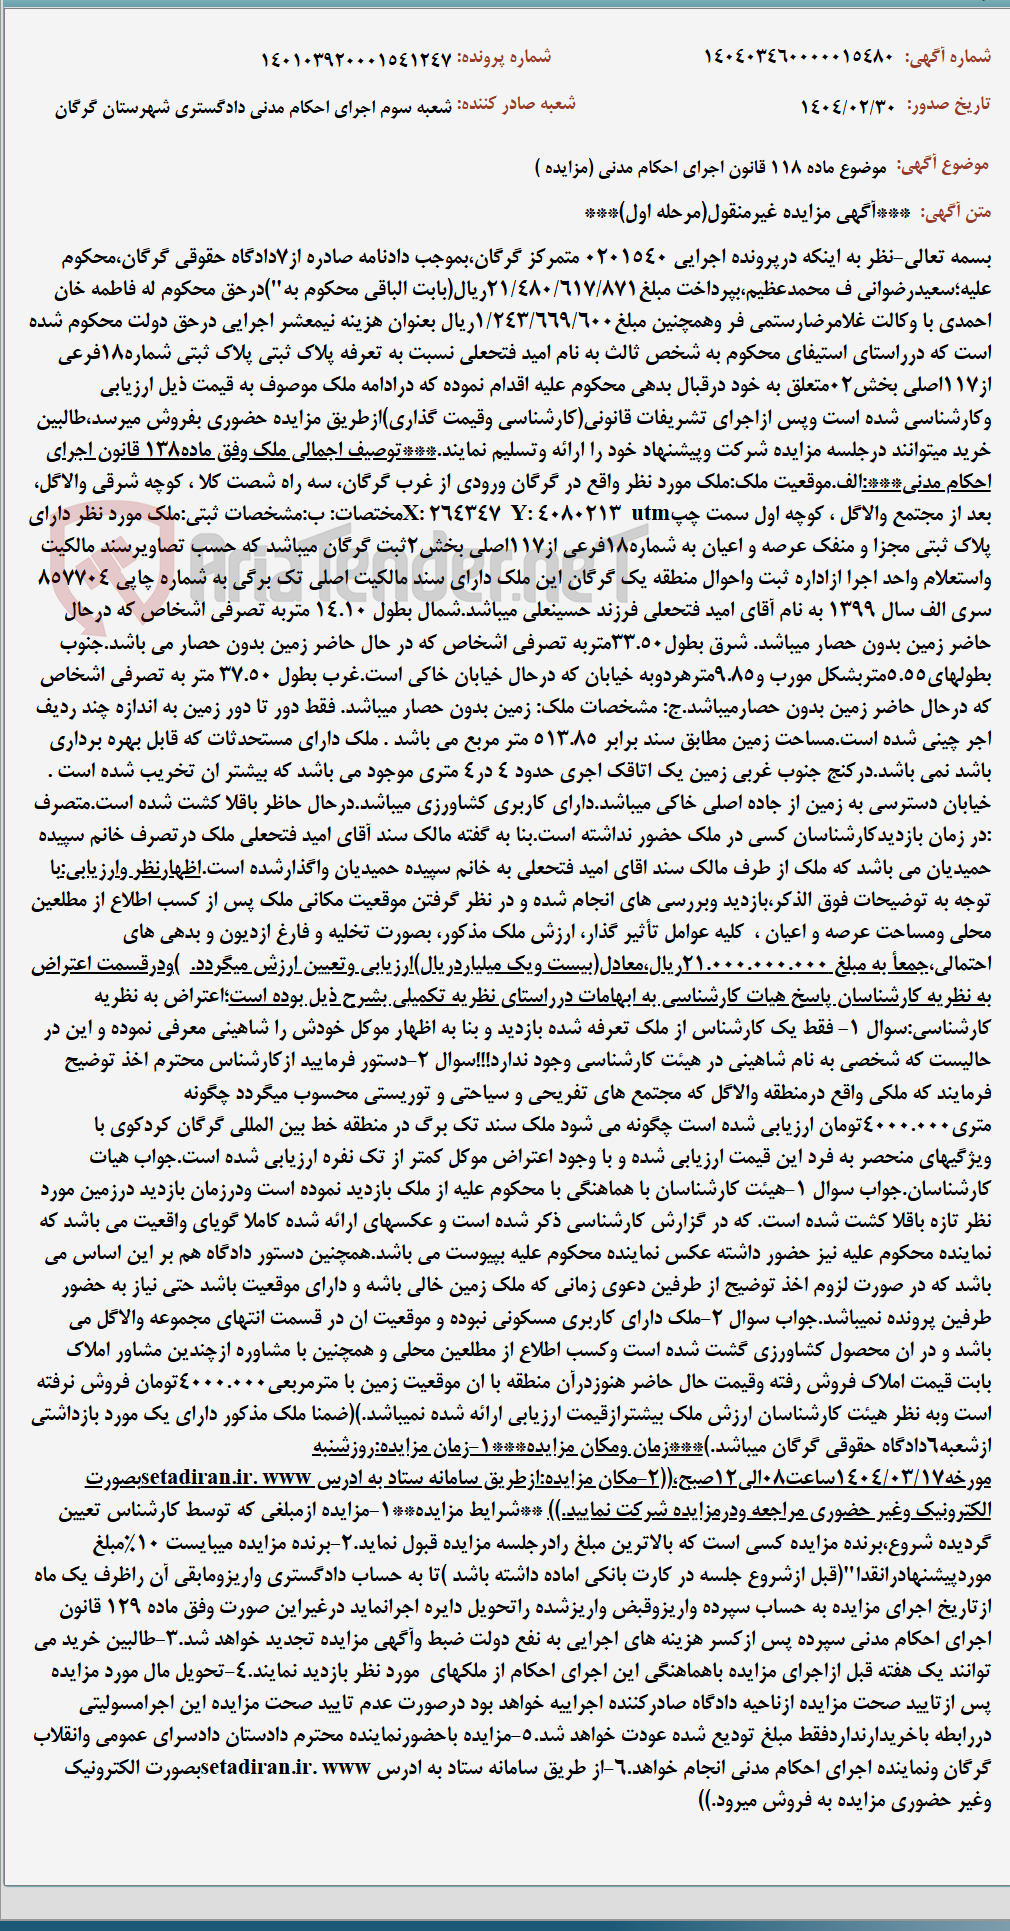 شماره آگهی: ۱۴۰۴۰۳۴۶۰۰۰۰۰۱۵۴۸۰ شماره پرونده: ۱۴۰۱۰۳۹۲۰۰۰۱۵۴۱۲۴۷
تاریخ صدور: ۱۴۰۴/۰۲/۳۰ شعبه صادر کننده: شعبه سوم اجرای احکام مدنی دادگستری شهرستان گرگان
موضوع آگهی: موضوع ماده ۱۱۸ قانون اجرای احکام مدنی (مزایده )
متن آگهی: ***آگهی مزایده غیرمنقول(مرحله اول)***
بسمه تعالی-نظر به اینکه درپرونده اجرایی ۰۲۰۱۵۴۰ متمرکز گرگان،بموجب دادنامه صادره از۷دادگاه حقوقی گرگان،محکوم
علیه؛سعیدرضوانی ف محمدعظیم،بپرداخت مبلغ۲۱/۴۸۰/۶۱۷/۸۷۱ریال(بابت الباقی محکوم به")درحق محکوم له فاطمه خان
احمدی با وکالت غلامرضارستمی فر وهمچنین مبلغ۱/۲۴۳/۶۶۹/۶۰۰ریال بعنوان هزینه نیمعشر اجرایی درحق دولت محکوم شده
است که درراستای استیفای محکوم به شخص ثالث به نام امید فتحعلی نسبت به تعرفه پلاک ثبتی پلاک ثبتی شماره۱۸فرعی
از۱۱۷اصلی بخش۰۲متعلق به خود درقبال بدهی محکوم علیه اقدام نموده که درادامه ملک موصوف به قیمت ذیل ارزیابی
وکارشناسی شده است وپس ازاجرای تشریفات قانونی(کارشناسی وقیمت گذاری)ازطریق مزایده حضوری بفروش میرسد،طالبین
خرید میتوانند درجلسه مزایده شرکت وپیشنهاد خود را ارائه وتسلیم نمایند.***توصیف اجمالی ملک وفق ماده۱۳۸ قانون اجرای
احکام مدنی***:الف.موقعیت ملک:ملک مورد نظر واقع در گرگان ورودی از غرب گرگان، سه راه شصت کلا ، کوچه شرقی والاگل،
بعد از مجتمع والاگل ، کوچه اول سمت چپutm X: ۲۶۴۳۴۷ Y: ۴۰۸۰۲۱۳مختصات: ب:مشخصات ثبتی:ملک مورد نظر دارای
پلاک ثبتی مجزا و منفک عرصه و اعیان به شماره۱۸فرعی از۱۱۷اصلی بخش۲ثبت گرگان میباشد که حسب تصاویرسند مالکیت
واستعلام واحد اجرا ازاداره ثبت واحوال منطقه یک گرگان این ملک دارای سند مالکیت اصلی تک برگی به شماره چاپی ۸۵۷۷۰۴
سری الف سال ۱۳۹۹ به نام آقای امید فتحعلی فرزند حسینعلی میباشد.شمال بطول ۱۴.۱۰ متربه تصرفی اشخاص که درحال
حاضر زمین بدون حصار میباشد. شرق بطول۳۳.۵۰متربه تصرفی اشخاص که در حال حاضر زمین بدون حصار می باشد.جنوب
بطولهای۵.۵۵متربشکل مورب و۹.۸۵مترهردوبه خیابان که درحال خیابان خاکی است.غرب بطول ۳۷.۵۰ متر به تصرفی اشخاص
که درحال حاضر زمین بدون حصارمیباشد.ج: مشخصات ملک: زمین بدون حصار میباشد. فقط دور تا دور زمین به اندازه چند ردیف
اجر چینی شده است.مساحت زمین مطابق سند برابر ۵۱۳.۸۵ متر مربع می باشد . ملک دارای مستحدثات که قابل بهره برداری
باشد نمی باشد.درکنج جنوب غربی زمین یک اتاقک اجری حدود ۴ در۴ متری موجود می باشد که بیشتر ان تخریب شده است .
خیابان دسترسی به زمین از جاده اصلی خاکی میباشد.دارای کاربری کشاورزی میباشد.درحال حاظر باقلا کشت شده است.متصرف
:در زمان بازدیدکارشناسان کسی در ملک حضور نداشته است.بنا به گفته مالک سند آقای امید فتحعلی ملک درتصرف خانم سپیده
حمیدیان می باشد که ملک از طرف مالک سند اقای امید فتحعلی به خانم سپیده حمیدیان واگذارشده است.اظهارنظر وارزیابی:با
توجه به توضیحات فوق الذکر،بازدید وبررسی های انجام شده و در نظر گرفتن موقعیت مکانی ملک پس از کسب اطلاع از مطلعین
محلی ومساحت عرصه و اعیان ، کلیه عوامل تأثیر گذار، ارزش ملک مذکور، بصورت تخلیه و فارغ ازدیون و بدهی های
احتمالی،جمعاً به مبلغ ۲۱.۰۰۰.۰۰۰.۰۰۰ریال،معادل(بیست ویک میلیاردریال)ارزیابی وتعیین ارزش میگردد. )ودرقسمت اعتراض
به نظریه کارشناسان پاسخ هیات کارشناسی به ابهامات درراستای نظریه تکمیلی بشرح ذیل بوده است؛اعتراض به نظریه
کارشناسی:سوال ۱- فقط یک کارشناس از ملک تعرفه شده بازدید و بنا به اظهار موکل خودش را شاهینی معرفی نموده و این در
حالیست که شخصی به نام شاهینی در هیئت کارشناسی وجود ندارد!!!سوال ۲-دستور فرمایید ازکارشناس محترم اخذ توضیح
فرمایند که ملکی واقع درمنطقه والاگل که مجتمع های تفریحی و سیاحتی و توریستی محسوب میگردد چگونه
متری۴۰۰۰.۰۰۰تومان ارزیابی شده است چگونه می شود ملک سند تک برگ در منطقه خط بین المللی گرگان کردکوی با
ویژگیهای منحصر به فرد این قیمت ارزیابی شده و با وجود اعتراض موکل کمتر از تک نفره ارزیابی شده است.جواب هیات
کارشناسان.جواب سوال ۱-هیئت کارشناسان با هماهنگی با محکوم علیه از ملک بازدید نموده است ودرزمان بازدید درزمین مورد
نظر تازه باقلا کشت شده است. که در گزارش کارشناسی ذکر شده است و عکسهای ارائه شده کاملا گویای واقعیت می باشد که
نماینده محکوم علیه نیز حضور داشته عکس نماینده محکوم علیه بپیوست می باشد.همچنین دستور دادگاه هم بر این اساس می
باشد که در صورت لزوم اخذ توضیح از طرفین دعوی زمانی که ملک زمین خالی باشه و دارای موقعیت باشد حتی نیاز به حضور
طرفین پرونده نمیباشد.جواب سوال ۲-ملک دارای کاربری مسکونی نبوده و موقعیت ان در قسمت انتهای مجموعه والاگل می
باشد و در ان محصول کشاورزی گشت شده است وکسب اطلاع از مطلعین محلی و همچنین با مشاوره ازچندین مشاور املاک
بابت قیمت املاک فروش رفته وقیمت حال حاضر هنوزدرآن منطقه با ان موقعیت زمین با مترمربعی۴۰۰۰.۰۰۰تومان فروش نرفته
است وبه نظر هیئت کارشناسان ارزش ملک بیشترازقیمت ارزیابی ارائه شده نمیباشد.)(ضمنا ملک مذکور دارای یک مورد بازداشتی
ازشعبه۶دادگاه حقوقی گرگان میباشد.)***زمان ومکان مزایده***۱-زمان مزایده:روزشنبه
مورخه۱۴۰۴/۰۳/۱۷ساعت۰۸الی۱۲صبح،((۲-مکان مزایده:ازطریق سامانه ستاد به ادرس setadiran.ir. wwwبصورت
الکترونیک وغیر حضوری مراجعه ودرمزایده شرکت نمایید.)) **شرایط مزایده**۱-مزایده ازمبلغی که توسط کارشناس تعیین
گردیده شروع،برنده مزایده کسی است که بالاترین مبلغ رادرجلسه مزایده قبول نماید.۲-برنده مزایده میبایست ۱۰٪مبلغ
موردپیشنهادرانقدا"(قبل ازشروع جلسه در کارت بانکی اماده داشته باشد )تا به حساب دادگستری واریزومابقی آن راظرف یک ماه
ازتاریخ اجرای مزایده به حساب سپرده واریزوقبض واریزشده راتحویل دایره اجرانماید درغیراین صورت وفق ماده ۱۲۹ قانون
اجرای احکام مدنی سپرده پس ازکسر هزینه های اجرایی به نفع دولت ضبط وآگهی مزایده تجدید خواهد شد.۳-طالبین خرید می
توانند یک هفته قبل ازاجرای مزایده باهماهنگی این اجرای احکام از ملکهای مورد نظر بازدید نمایند.۴-تحویل مال مورد مزایده
پس ازتایید صحت مزایده ازناحیه دادگاه صادرکننده اجراییه خواهد بود درصورت عدم تایید صحت مزایده این اجرامسولیتی
دررابطه باخریدارنداردفقط مبلغ تودیع شده عودت خواهد شد.۵-مزایده باحضورنماینده محترم دادستان دادسرای عمومی وانقلاب
گرگان ونماینده اجرای احکام مدنی انجام خواهد.۶-از طریق سامانه ستاد به ادرس setadiran.ir. wwwبصورت الکترونیک
وغیر حضوری مزایده به فروش میرود.))
AriaTender.neT